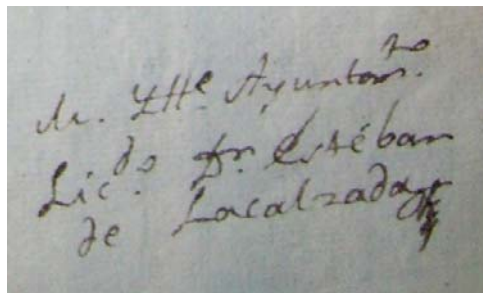 M. Ille Ayuntamto.
Licdo. Dn. Estéban
de Lacalzada